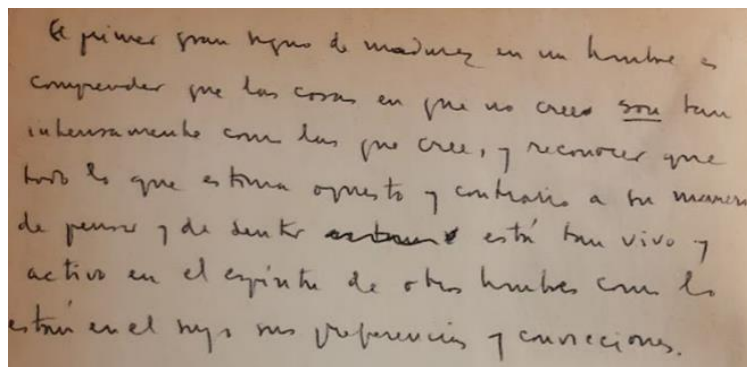 El primer gran signo de madurez en un hombre es
comprender que las cosas en que no cree son tan
intensamente como las que cree, y reconocer que
todo lo que estima opuesto y contrario a su manera
de pensar y de sentir está tan vivo y
activo en el espíritu de otros hombres como lo
están en el suyo sus preferencias y convicciones.